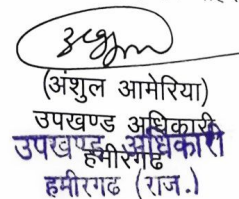 (अंशुल आमेरिया)
उपखण्ड अधिकारी
हमीरगढ
उपखण्ड अधिकारी
हमीरगढ (राज.)